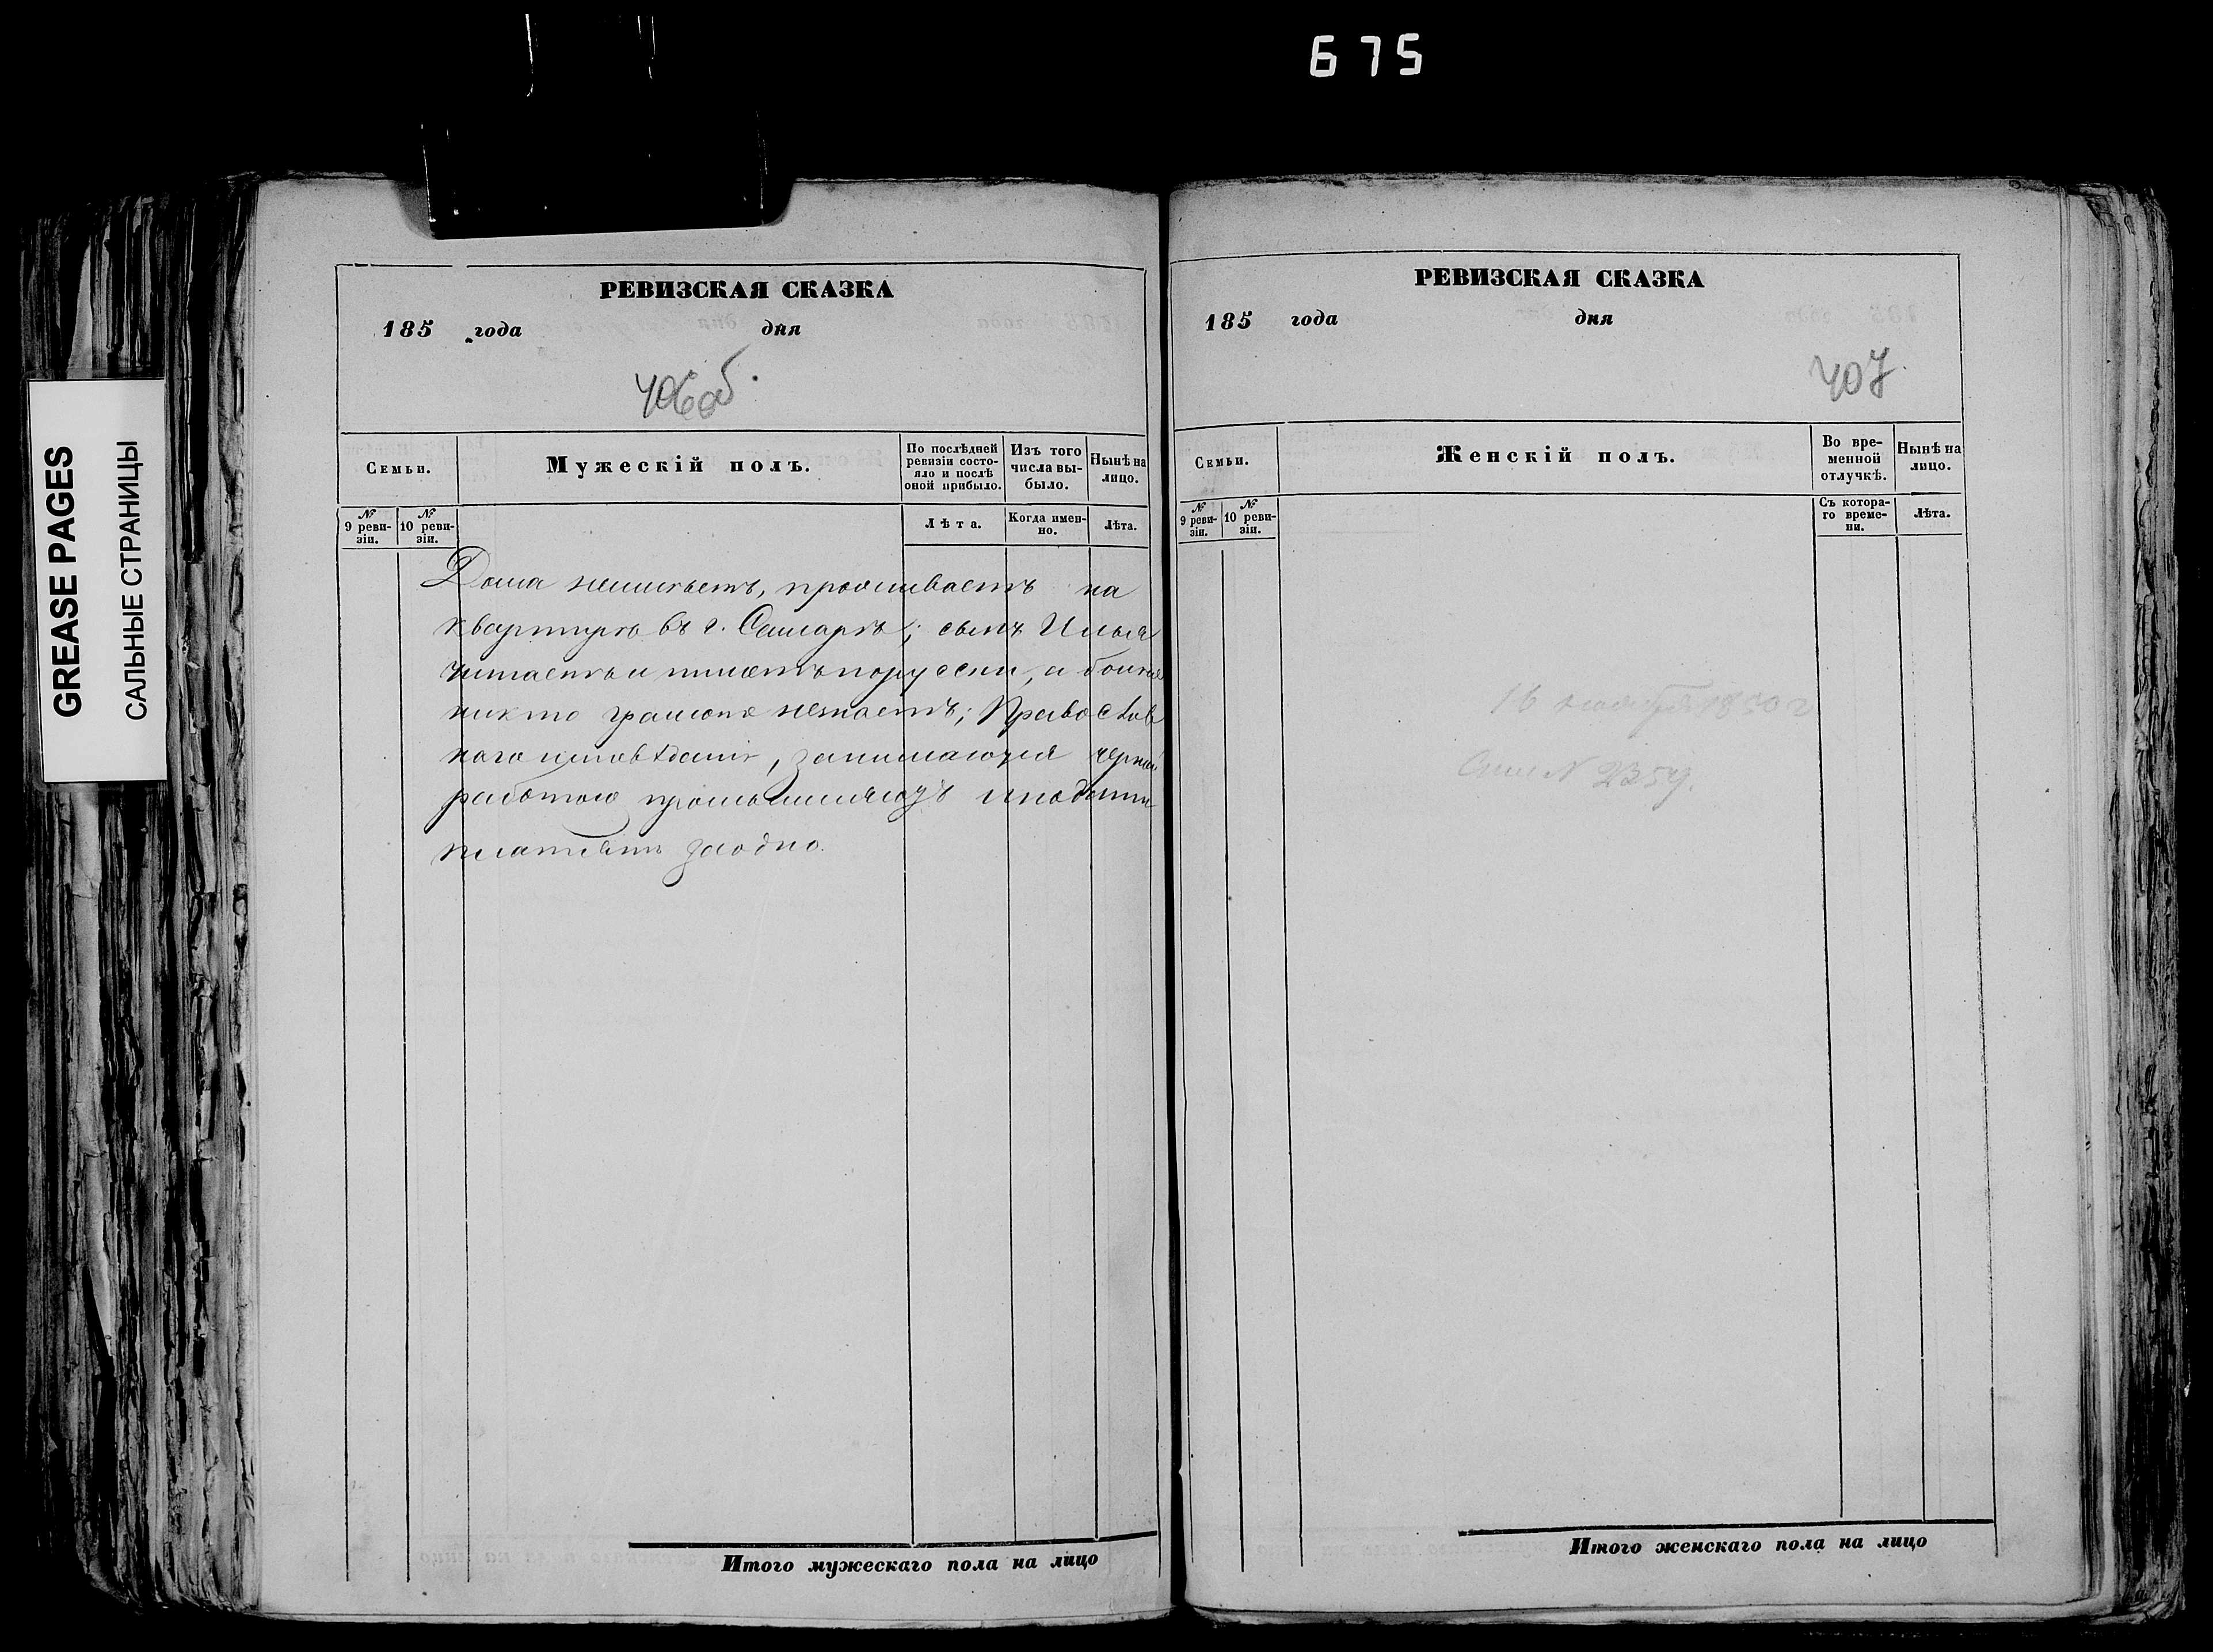 675
GREASE PAGES
САЛЬНЫЕ СТРАНИЦЫ
РЕВИЗСКАЯ СКАЗКА
185 года дня
406 об.
Семьи.
Мужескій полъ.
По послѣдней ревизіи состояло и послѣ оной прибыло.
Изъ того числа выбыло.
Нынѣ на лицо.
№ 9 ревизіи.
№ 10 ревизіи.
Лѣта.
Когда именно.
Лѣта.
Дома неимѣетъ, проживаетъ на
квартирѣ въ г. Самарѣ; сынъ Илья
читаетъ и пишетъ поруски, а более
никто грамоте незнаетъ; Православ
наго исповѣданія, занимаются черной
работою промышляютъ и подати
платятъ заодно.
Итого мужескаго пола на лицо
РЕВИЗСКАЯ СКАЗКА
185 года дня
407.
Семьи.
Женскій полъ.
Во временной отлучкѣ.
Нынѣ на лицо.
№ 9 ревизіи.
№ 10 ревизіи.
Съ котораго времени.
Лѣта.
16 1850 г
№ 2359.
Итого женскаго пола на лицо